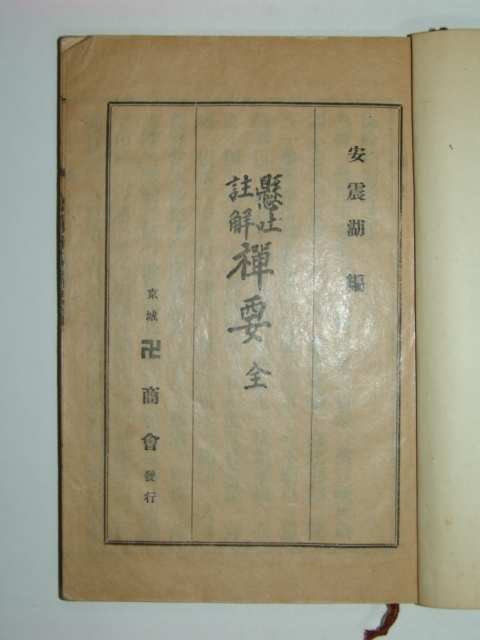 安震湖 編
懸吐
註解
禪要 全
京城 卍商會 發行